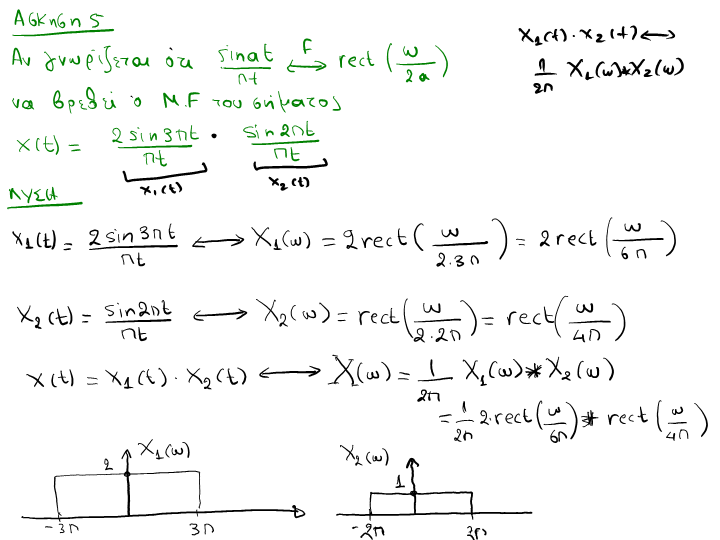 Άσκηση 5
Αν γνωρίζεται ότι sinat/πt ⟷F rect(ω/2a)
να βρεθεί ο M.F του σήματος
x(t) = 2sin3πt/πt · sin2πt/πt
x₁(t) x₂(t)
x₁(t)·x₂(t) ⟷
1/2π X₁(ω)*X₂(ω)
ΛΥΣΗ
x₁(t) = 2sin3πt/πt ⟷ X₁(ω) = 2rect(ω/2·3π) = 2rect(ω/6π)
x₂(t) = sin2πt/πt ⟷ X₂(ω) = rect(ω/2·2π) = rect(ω/4π)
x(t) = x₁(t)·x₂(t) ⟷ X(ω) = 1/2π X₁(ω)*X₂(ω)
= 1/2π 2·rect(ω/6π) * rect(ω/4π)
X₁(ω)
2
-3π 3π
X₂(ω)
1
-2π 2π